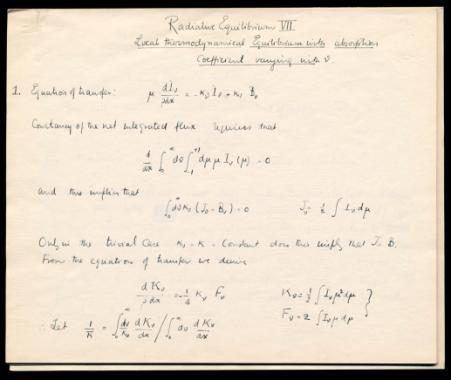 Radiative Equilibrium VII
Local thermodynamical Equilibrium with absorption
Coefficient varying with ν.
1. Equation of transfer: μ dIν/ρdx = -κν Iν + κν Bν
Constancy of the net integrated flux requires that
d/dx ∫₀^∞ dν ∫₋₁^+1 dμ μ Iν(μ) = 0
and this implies that
∫₀^∞ dν κν (Jν - Bν) = 0 Jν = ½ ∫ Iν dμ
Only in the trivial case κν = κ = constant does this imply that J = B.
From the equation of transfer we derive
dKν/ρdx = -¼ κν Fν Kν = ½ ∫ Iν μ² dμ
Fν = 2 ∫ Iν μ dμ }
∴ Let 1/κ̄ = ∫₀^∞ dν/κν dKν/dx / ∫₀^∞ dν dKν/dx